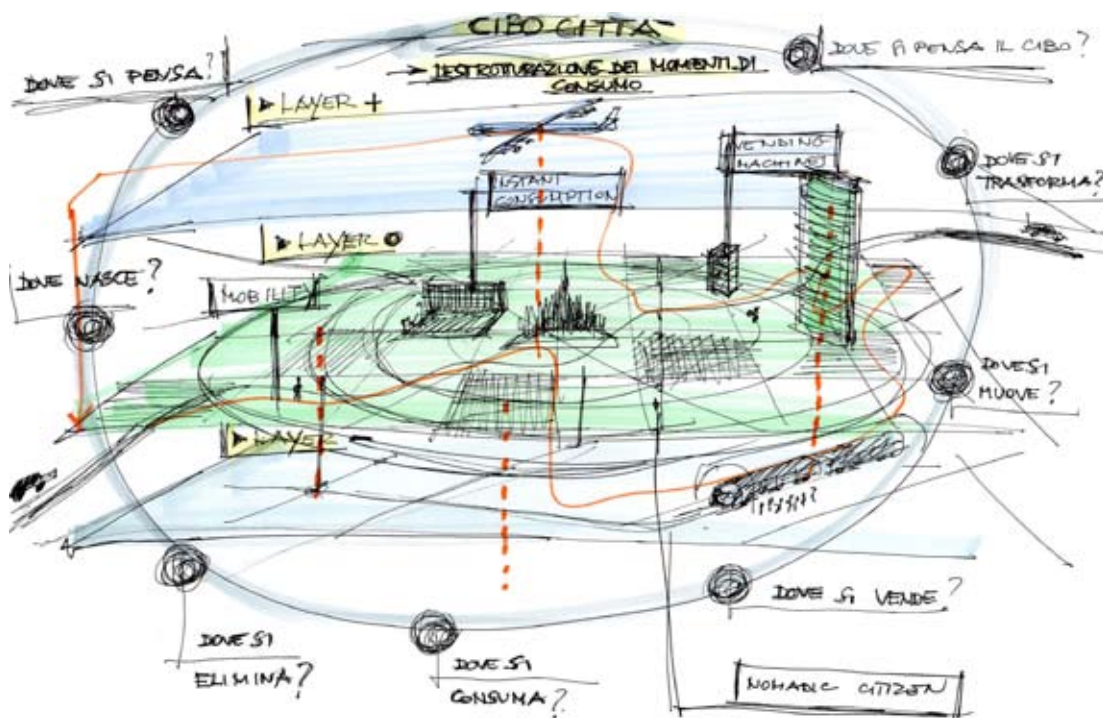 CIBO CITTA
DOVE SI PENSA IL CIBO?
DOVE SI PENSA?
DESTRUTTURAZIONE DEI MOMENTI DI
CONSUMO
LAYER +
VENDING
MACHINES
DOVE SI
TRASFORMA?
INSTANT
CONSUMPTION
LAYER
DOVE NASCE?
MOBILIT
DOVE SI
MUOVE?
LAYER -
DOVE SI VENDE?
DOVE SI
ELIMINA?
DOVE SI
CONSUMA?
NOMADIC CITIZEN